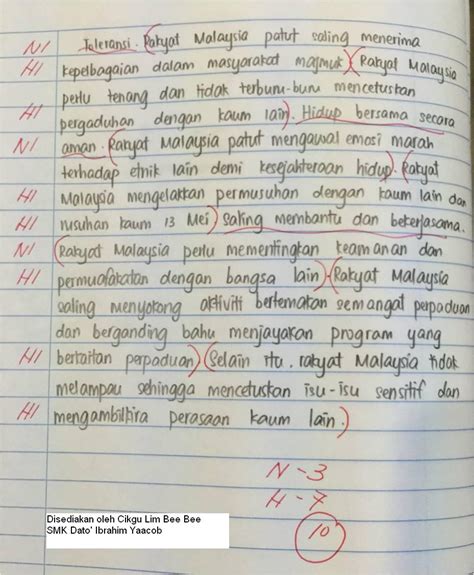 N1 Toleransi. (Rakyat Malaysia patut saling menerima
H1 kepelbagaian dalam masyarakat majmuk) (Rakyat Malaysia
perlu tenang dan tidak terburu-buru mencetuskan
H1 pergaduhan dengan kaum lain). Hidup bersama secara
N1 aman. (Rakyat Malaysia patut mengawal emosi marah
terhadap etnik lain demi kesejahteraan hidup). (Rakyat
H1 Malaysia mengelakkan permusuhan dengan kaum lain dan
H1 rusuhan kaum 13 Mei) Saling membantu dan bekerjasama.
N1 (Rakyat Malaysia perlu mementingkan keamanan dan
H1 permuafakatan dengan bangsa lain). (Rakyat Malaysia
saling menyokong aktiviti bertemakan semangat perpaduan
dan berganding bahu menjayakan program yang
H1 berkaitan perpaduan) (Selain itu, rakyat Malaysia tidak
melampau sehingga mencetuskan isu-isu sensitif dan
H1 mengambilkira perasaan kaum lain.)
N - 3
H - 7
10
Disediakan oleh Cikgu Lim Bee Bee
SMK Dato' Ibrahim Yaacob